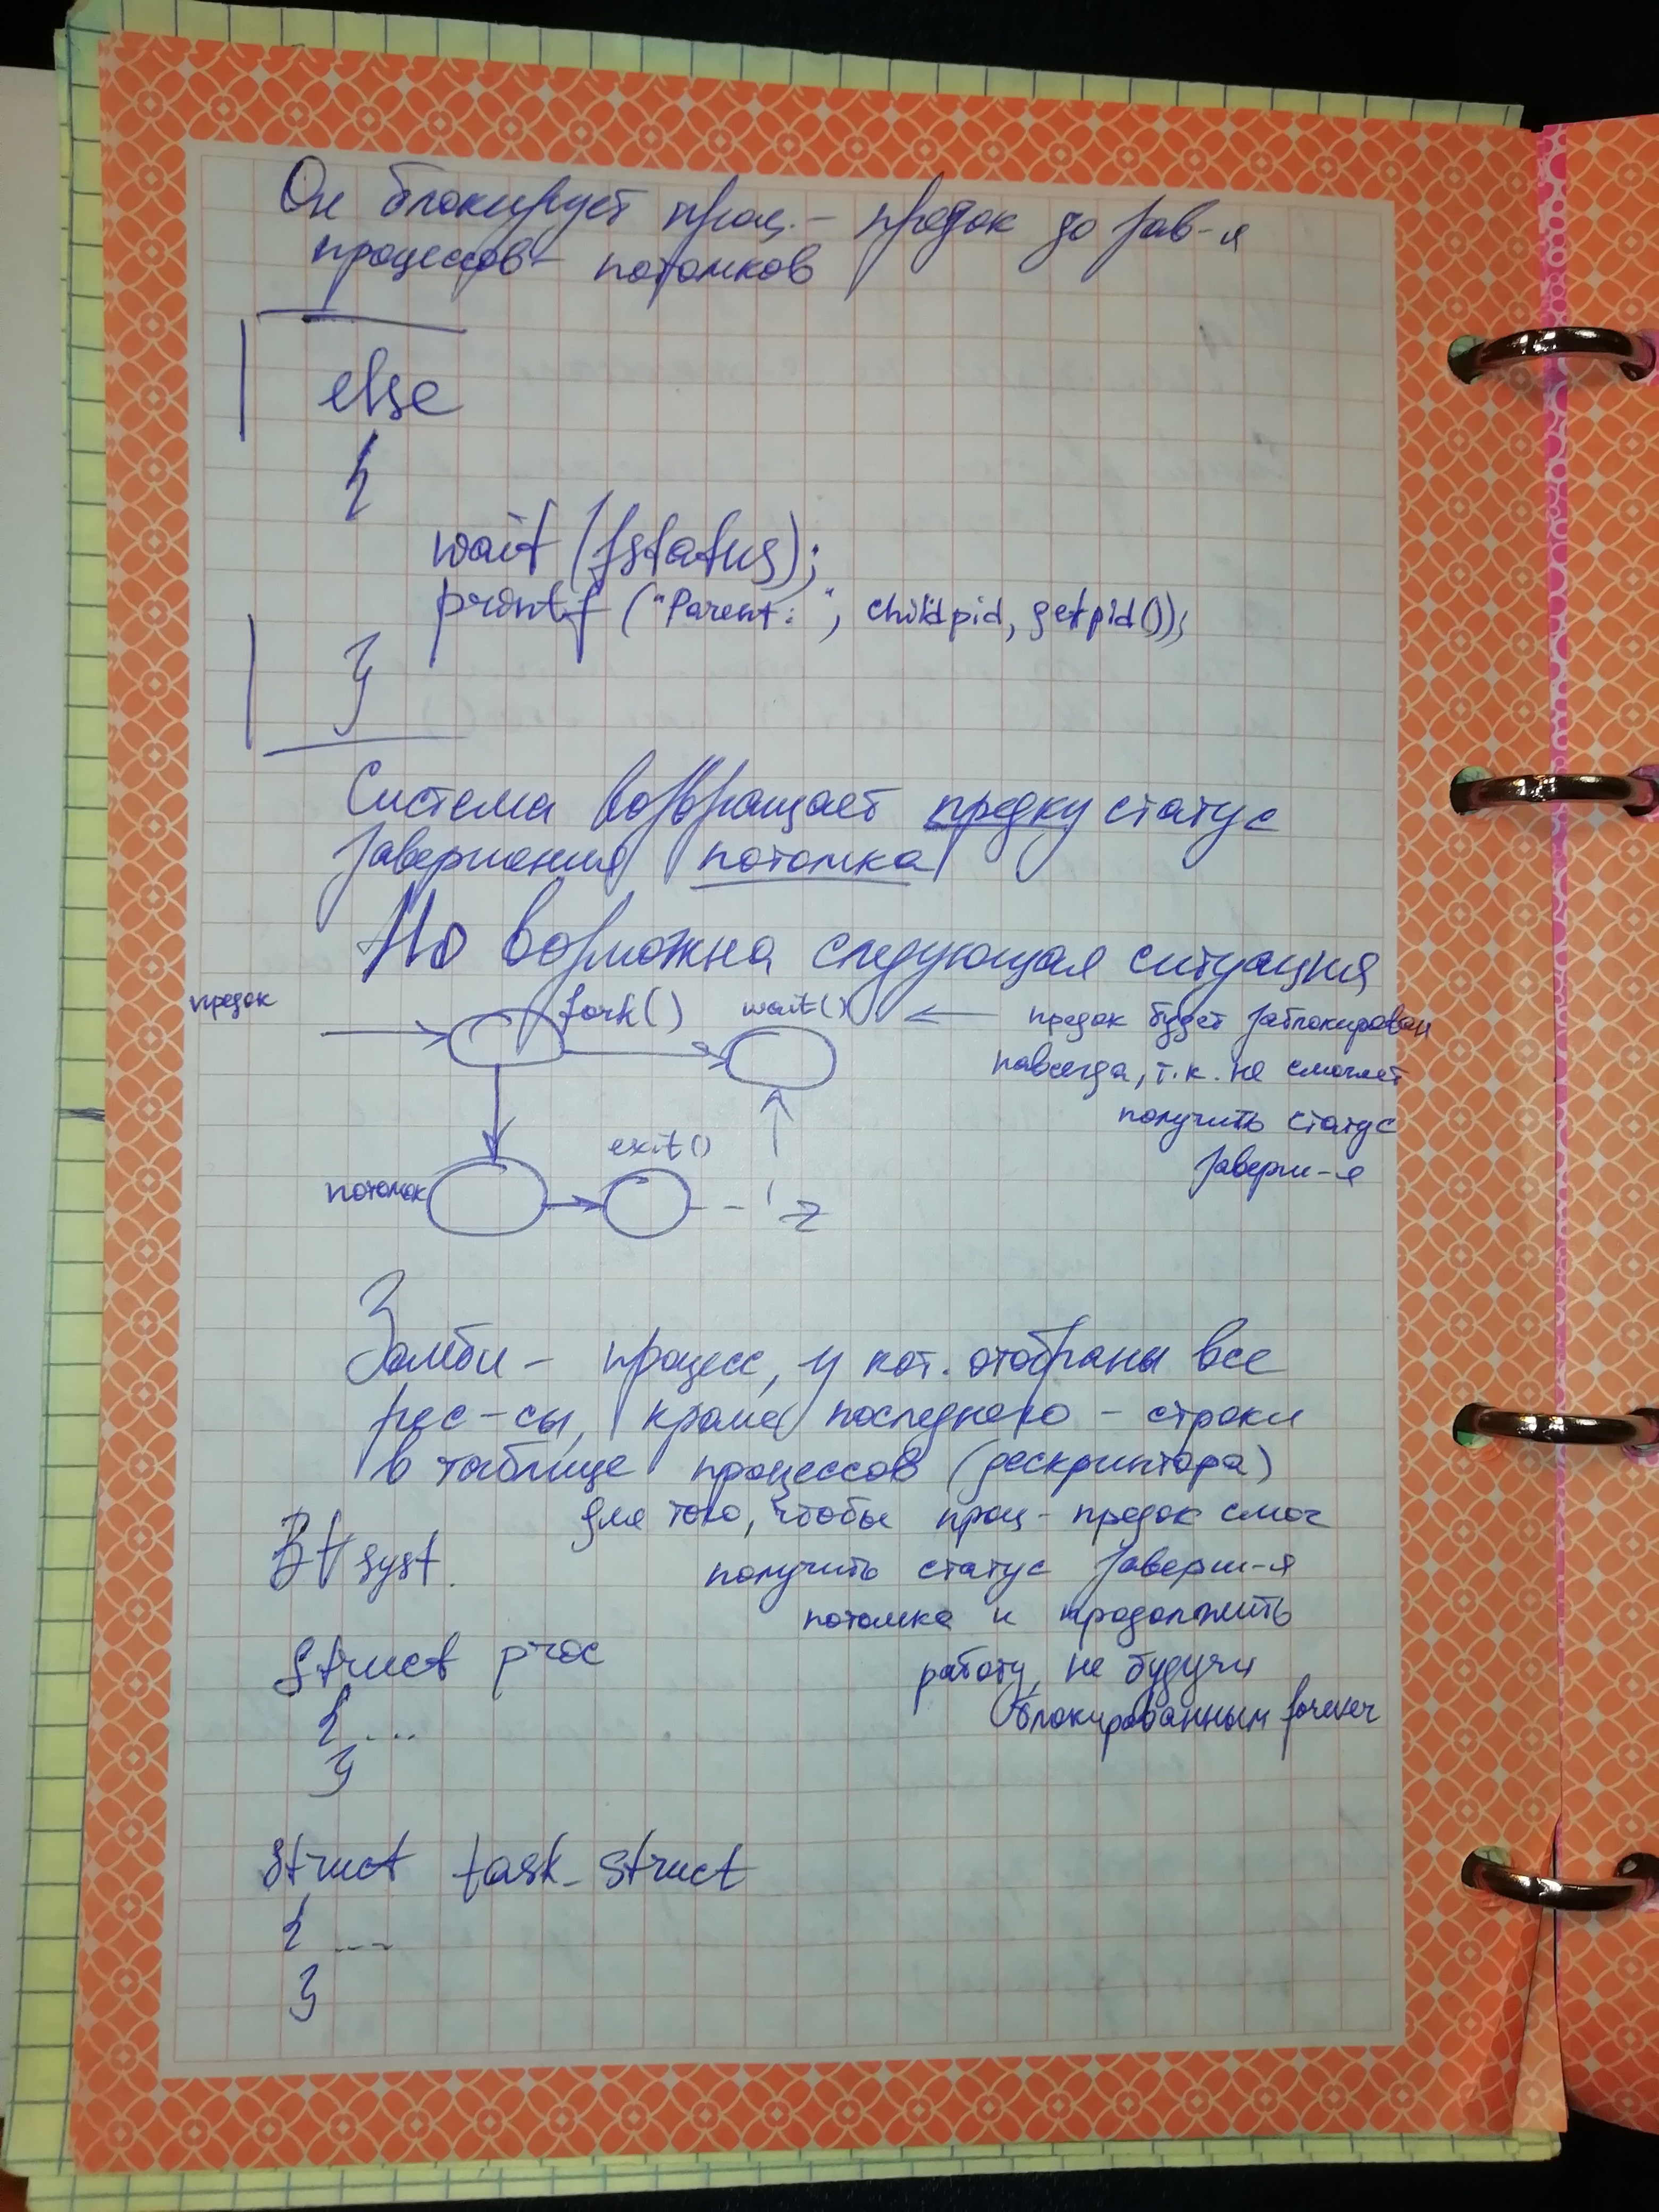 Он блокирует проц. - предок до зав-я
процессов - потомков
else
{
wait (&status);
printf ("Parent: ", childpid, getpid());
}
Система возвращает предку статус
завершения потомка
Но возможна следующая ситуация
предок fork() wait() ← предок будет заблокирован
навсегда, т.к. не сможет
получить статус
заверш-я
exit()
потомок
Зомби - процесс, у кот. отобраны все
рес-сы, кроме последнего - строки
в таблице процессов (дескриптора)
для того, чтобы проц - предок смог
получить статус заверш-я
потомка и продолжить
работу, не будучи
блокированным forever
В ∀ syst.
struct proc
{ ...
}
struct task_struct
{ ...
}